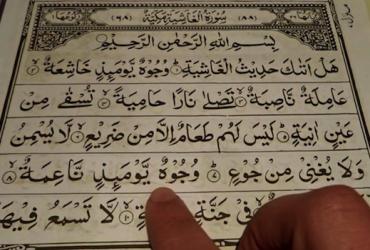 سُوْرَةُ الْغَاشِيَةِ مَكِّيَّةٌ (٨٨) (٦٨)
بِسْمِ اللّٰهِ الرَّحْمٰنِ الرَّحِيْمِ
هَلْ اَتٰىكَ حَدِيْثُ الْغَاشِيَةِ ١ وُجُوْهٌ يَّوْمَىِٕذٍ خَاشِعَةٌ ٢
عَامِلَةٌ نَّاصِبَةٌ ٣ تَصْلٰى نَارًا حَامِيَةً ٤ تُسْقٰى مِنْ
عَيْنٍ اٰنِيَةٍ ٥ لَيْسَ لَهُمْ طَعَامٌ اِلَّا مِنْ ضَرِيْعٍ ٦ لَّا يُسْمِنُ
وَلَا يُغْنِيْ مِنْ جُوْعٍ ٧ وُجُوْهٌ يَّوْمَىِٕذٍ نَّاعِمَةٌ ٨
فِيْ جَنَّةٍ ١٠ لَّا تَسْمَعُ فِيْهَا